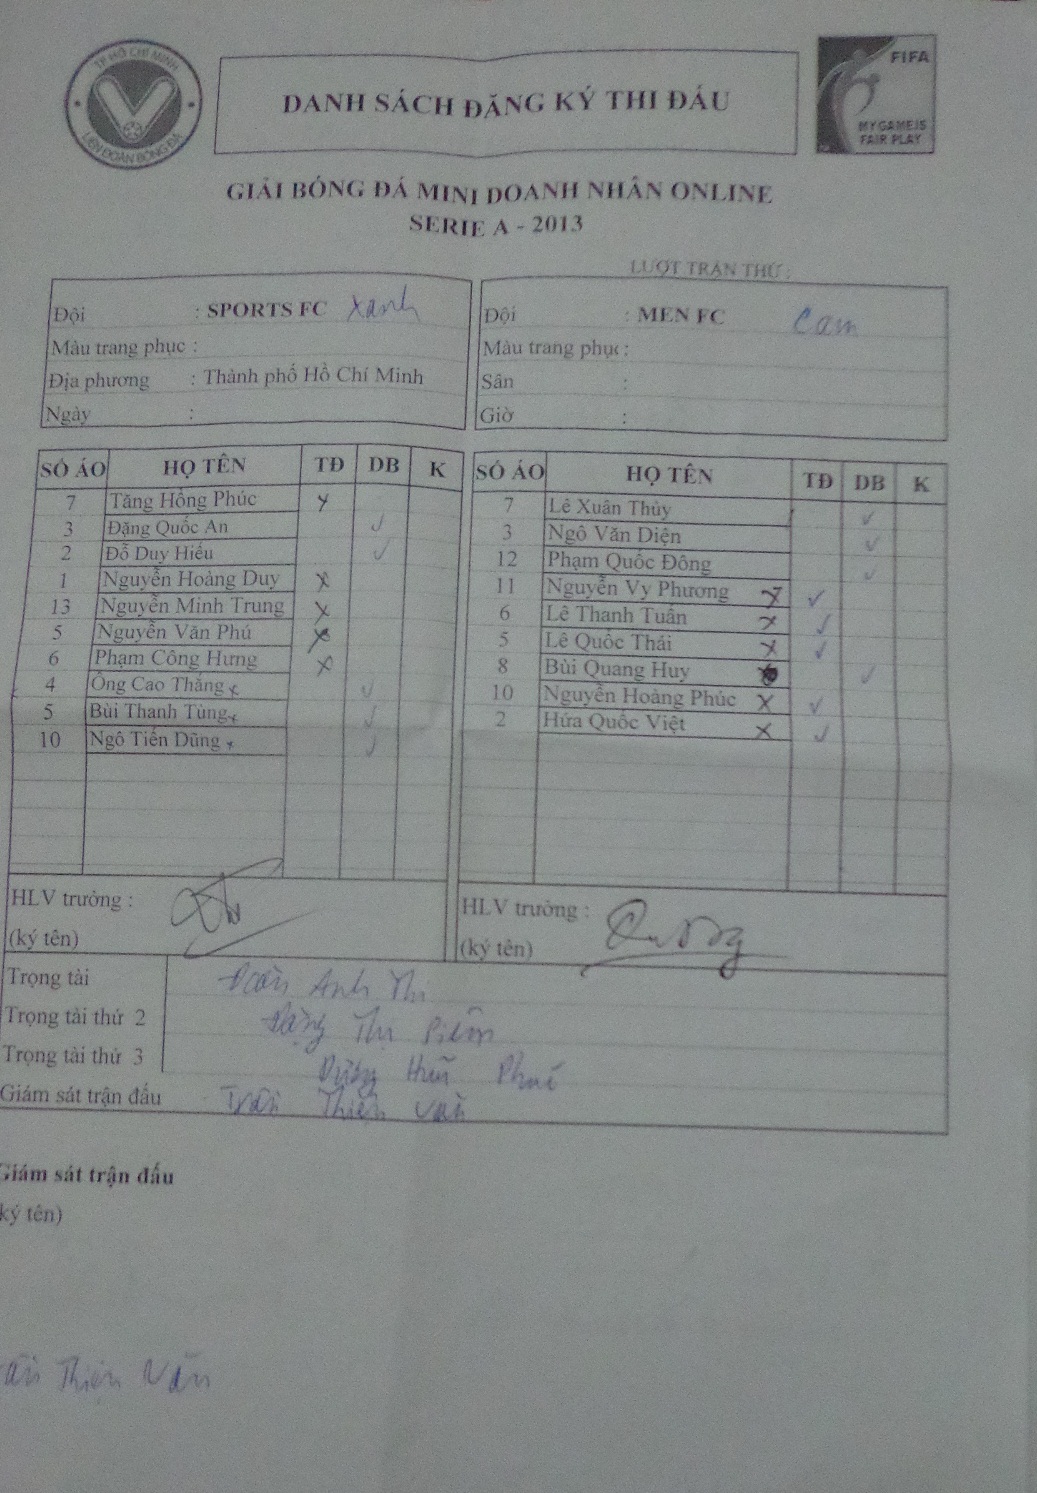 TP HỒ CHÍ MINH
LIÊN ĐOÀN BÓNG ĐÁ
DANH SÁCH ĐĂNG KÝ THI ĐẤU
FIFA
MY GAME IS
FAIR PLAY
GIẢI BÓNG ĐÁ MINI DOANH NHÂN ONLINE
SERIE A - 2013
LƯỢT TRẬN THỨ :
Đội : SPORTS FC Xanh
Màu trang phục :
Địa phương : Thành phố Hồ Chí Minh
Ngày :
Đội : MEN FC Cam
Màu trang phục :
Sân :
Giờ :
SỐ ÁO HỌ TÊN TĐ DB K
7 Tăng Hồng Phúc x
3 Đặng Quốc An ✓
2 Đỗ Duy Hiếu ✓
1 Nguyễn Hoàng Duy x
13 Nguyễn Minh Trung x
5 Nguyễn Văn Phú x
6 Phạm Công Hưng x
4 Ông Cao Thắng x ✓
5 Bùi Thanh Tùng x ✓
10 Ngô Tiến Dũng x ✓
SỐ ÁO HỌ TÊN TĐ DB K
7 Lê Xuân Thùy ✓
3 Ngô Văn Diện ✓
12 Phạm Quốc Đông ✓
11 Nguyễn Vy Phương x ✓
6 Lê Thanh Tuấn x ✓
5 Lê Quốc Thái x ✓
8 Bùi Quang Huy ✓
10 Nguyễn Hoàng Phúc x ✓
2 Hứa Quốc Việt x ✓
HLV trưởng :
(ký tên)
HLV trưởng :
(ký tên)
Trọng tài Đoàn Anh Thi
Trọng tài thứ 2 Đặng Thị
Trọng tài thứ 3 Hữu
Giám sát trận đấu Trần Thiện Văn
Giám sát trận đấu
ký tên)
Thiện Văn